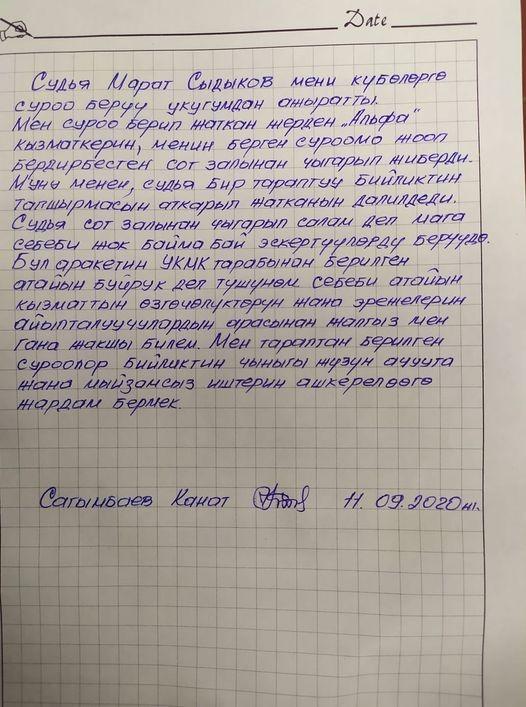 Date
Судья Марат Сыдыков мени күбөлөргө
суроо берүү укугумдан ажыратты.
Мен суроо берип жаткан жерден „Альфа"
кызматкерин, менин берген суроомо жооп
бердирбестен сот залынан чыгарып жиберди.
Муну менен, судья бир тараптуу Бийликтин
тапшырмасын аткарып жатканын далилдеди.
Судья сот залынан чыгарып салам деп мага
себеби жок байма бай эскертүүлөрдү берүүдө.
Бул аракетин УКМК тарабынан берилген
атайын буйрук деп түшүнөм себеби атайын
кызматтын өзгөчөлүктөрүн жана эрежелерин
айыпталуучулардын арасынан жалгыз мен
гана жакшы билем. Мен тараптан берилген
суроолор Бийликтин чыныгы жүзүн ачууга
жана мыйзамсыз иштерин ашкерелөөгө
жардам бермек.
Сагынбаев Канат 11.09.2020ж.